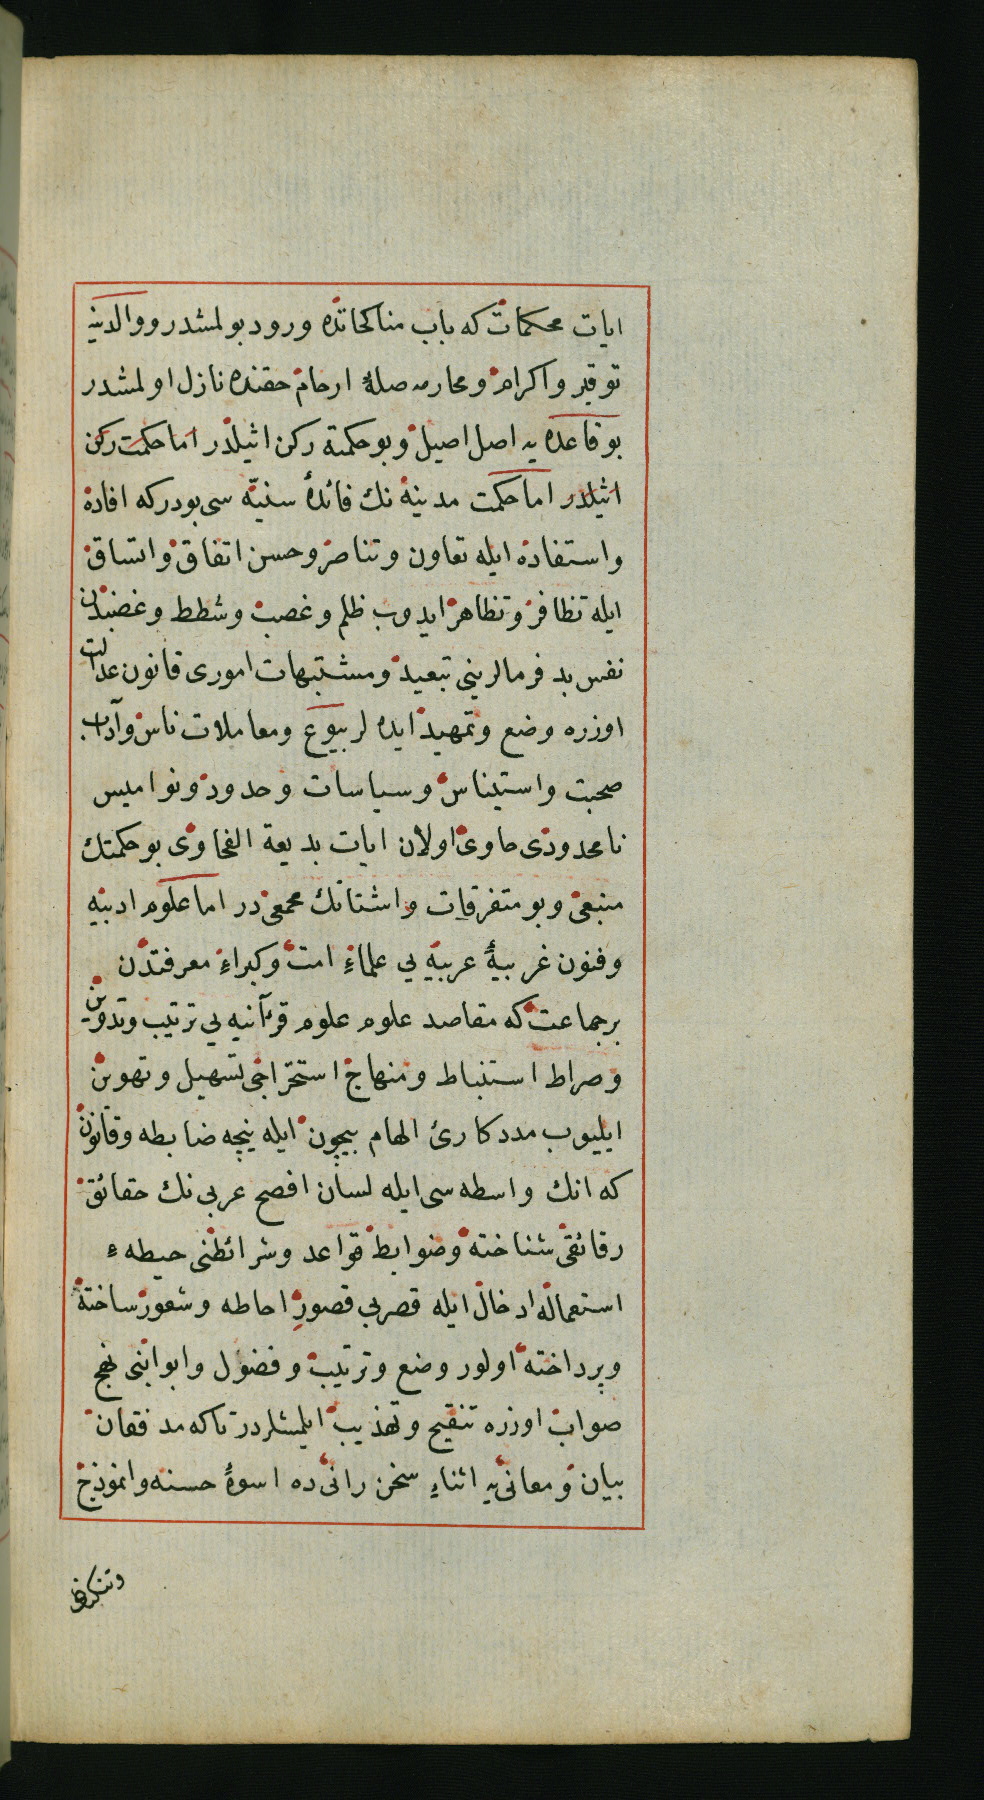 ايات محكمات كه باب مناكحاتده ورود بولمشدر ووالدينه
توقير واكرام ومحارمه صلۀ ارحام حقنده نازل اولمشدر
بوقاعده يه اصل اصيل وبوحكمته ركن اثيلدر اما حكمت ركن
اثيلدر اما حكمت مدينه نك فائدۀ سنيّه سى بودركه افاده
واستفاده ايله تعاون وتناصر وحسن اتفاق واتساق
ايله تظافر وتظاهر ايدوب ظلم وغصب وشطط وغضبدن
نفس بد فرمالرينى تبعيد ومشتبهات امورى قانون عدالت
اوزره وضع وتمهيد ايده لر بيوع ومعاملات ناس وآداب
صحبت واستيناس وسياسات وحدود ونواميس
نامحدودى حاوى اولان ايات بديعة الفحاوى بوحكمتك
منبعى وبو متفرقات واشتاتك مجمعى در اما علوم ادبيه
وفنون غريبۀ عربيه يى علماءِ امت وكبراءِ معرفتدن
برجماعت كه مقاصد علوم علوم قرآنيه يى ترتيب وتدوين
وصراط استنباط ومنهاج استخراجى تسهيل وتهوين
ايليوب مددكارئ الهام بيچون ايله نيچه ضابطه وقانون
كه انك واسطه سى ايله لسان افصح عربى نك حقائق
رقائقى شناخته وضوابط قواعد وشرائطنى حيطه ء
استعماله ادخال ايله قصر بى قصورِ احاطه وشعور ساخته
وپرداخته اولور وضع وترتيب وفصول وابوابنى نهج
صواب اوزره تنقيح وتهذيب ايلمشلردر تاكه مدققان
بيان ومعانى يه اثناءِ سخن رانى ده اسوۀ حسنه وانموذج